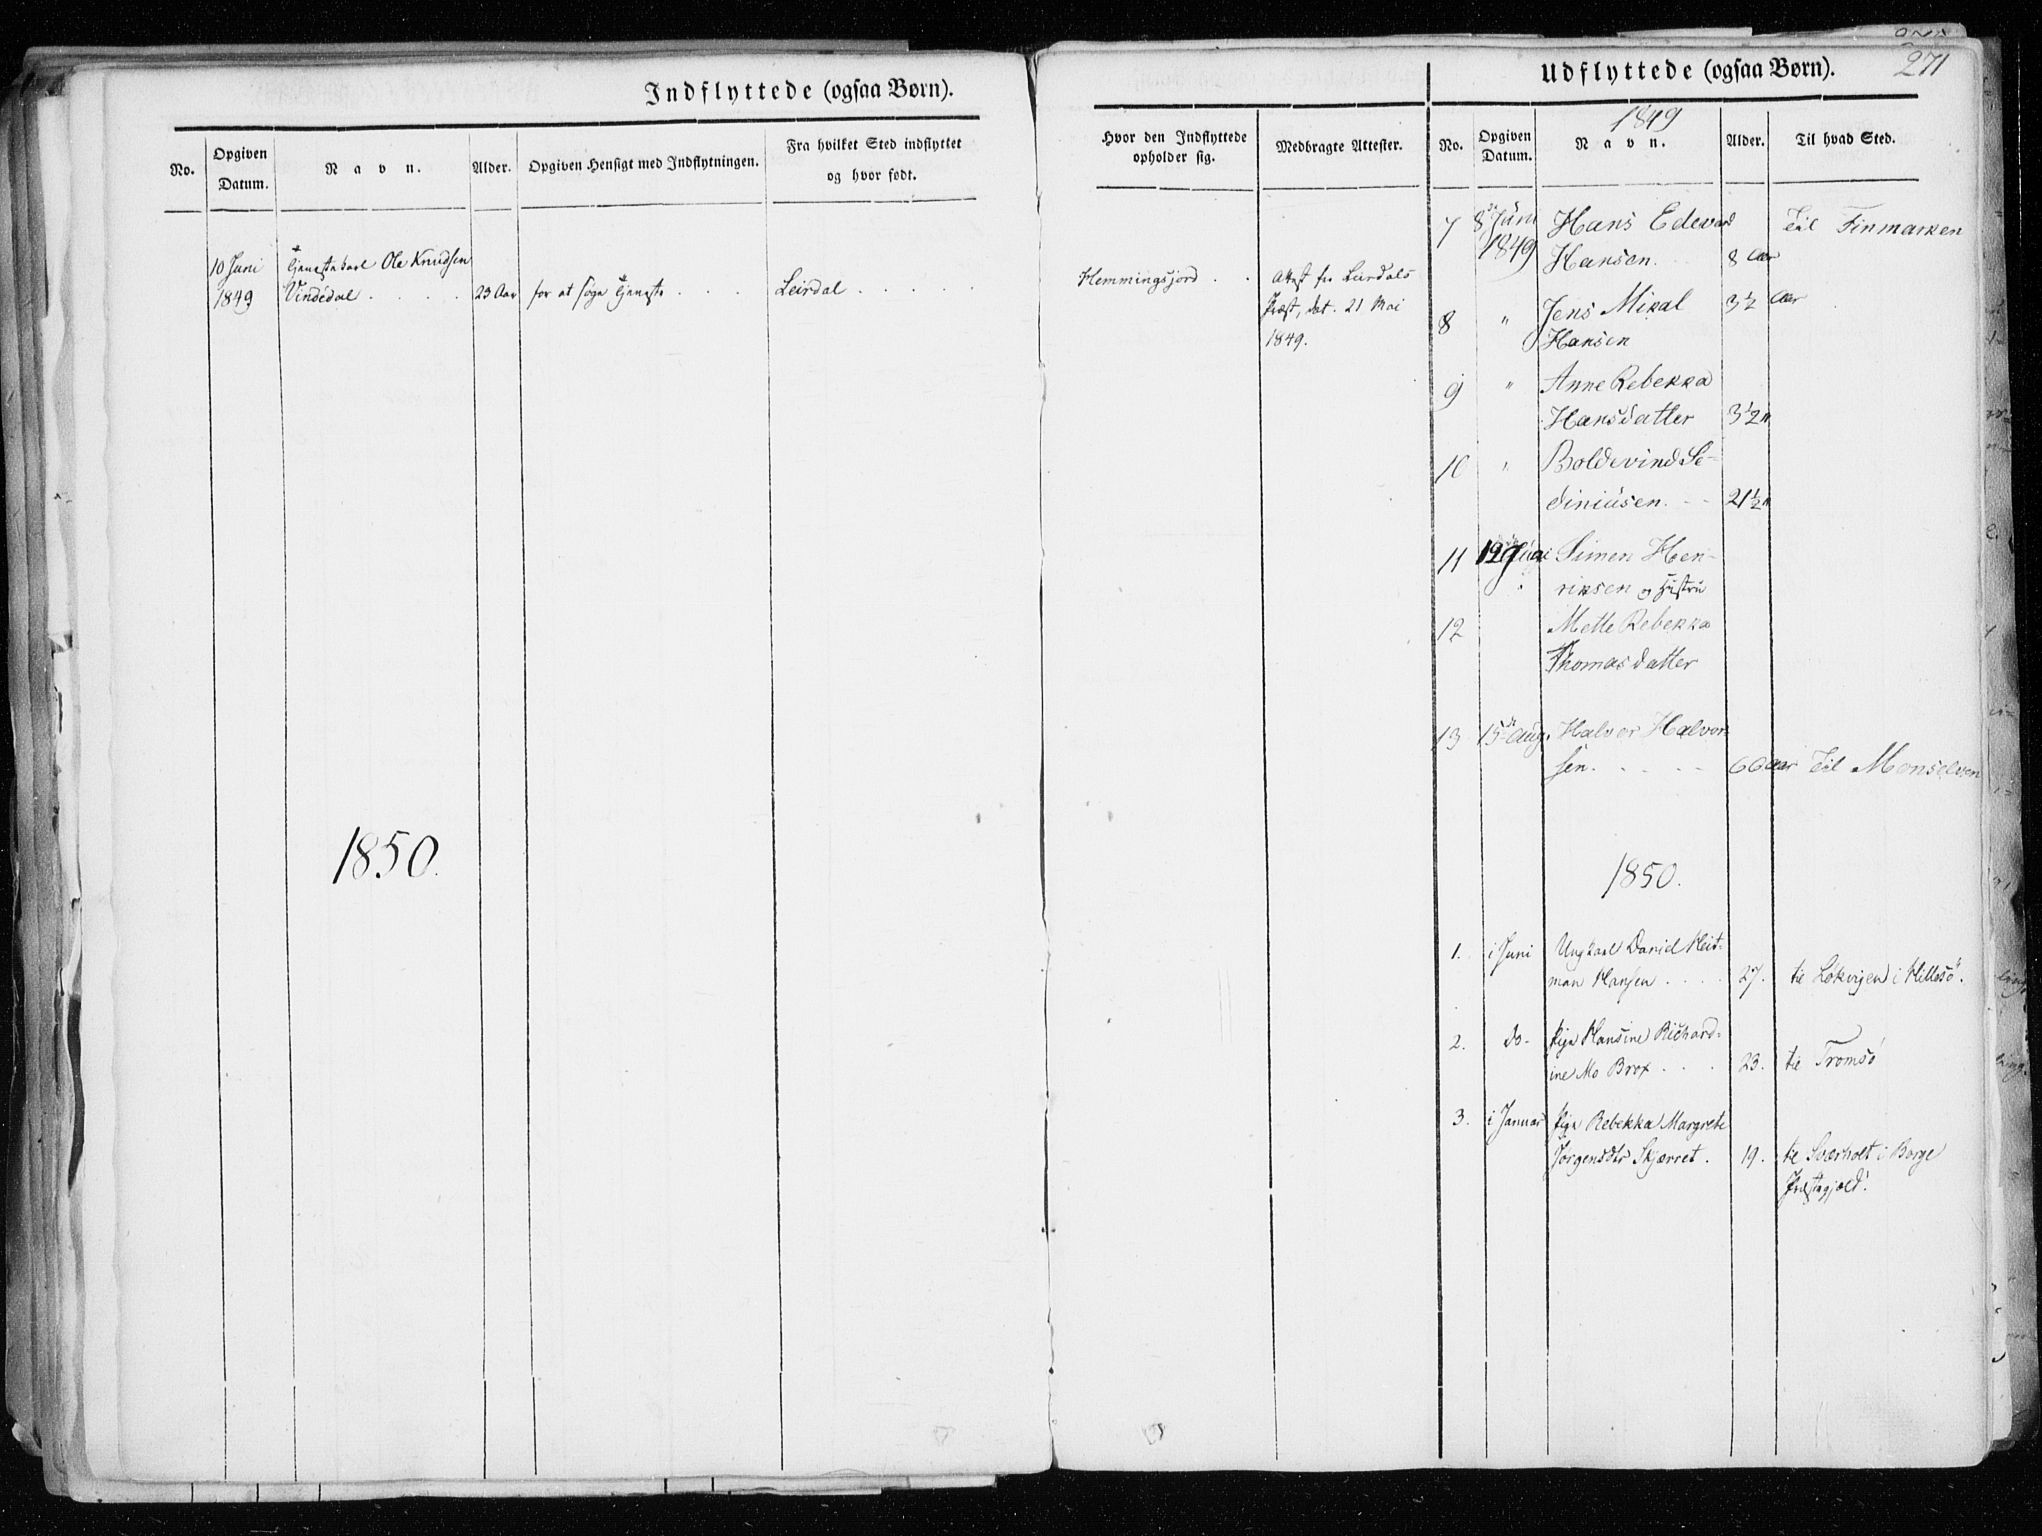 Indflyttede (ogsaa Børn).
No.
Opgiven
Datum.
Navn.
Alder.
Opgiven Hensigt med Indflytningen.
Fra hvilket Sted indflyttet
og hvor født.
10 Juni
1849
tjenestekarl Ole Knudsen
Vindedal . . . .
23 Aar
for at søge tjeneste . . .
Leirdal . . . . .
1850.
271
Hvor den Indflyttede
opholder sig.
Medbragte Attester.
Hemmingsjord . .
Attest fra Leirdals
Præst, dat. 21 Mai
1849.
Udflyttede (ogsaa Børn).
1849
No.
Opgiven
Datum.
Navn.
Alder.
Til hvad Sted.
7 8de Juni Hans Edevard Til Finmarken
1849 Hansen. 8 Aar
8 " Jens Mikal 3½ Aar
Hansen
9 " Anne Rebekka
Hansdatter 3½ "
10 " Boldevind Se-
diniusen. - - 21½ "
11 Simen Hen-
riksen og Hustru
12 Mette Rebekka
Thomasdatter
13 15de Aug. Halvor Halvor-
sen. . . . . 60 Aar Til Monselven
1850.
1. i Juni Ungkarl Daniel Heit-
man Hansen . . . . 27. til Løkvigen i Hillesø.
2. do- Pige Hansine Richard-
ine Mo Brox . . . 23. til Tromsø
3. i Januar Pige Rebekka Margrete
Jørgensdtr Skjærret . 19. til Sværholt i Borge
Præstegjæld.